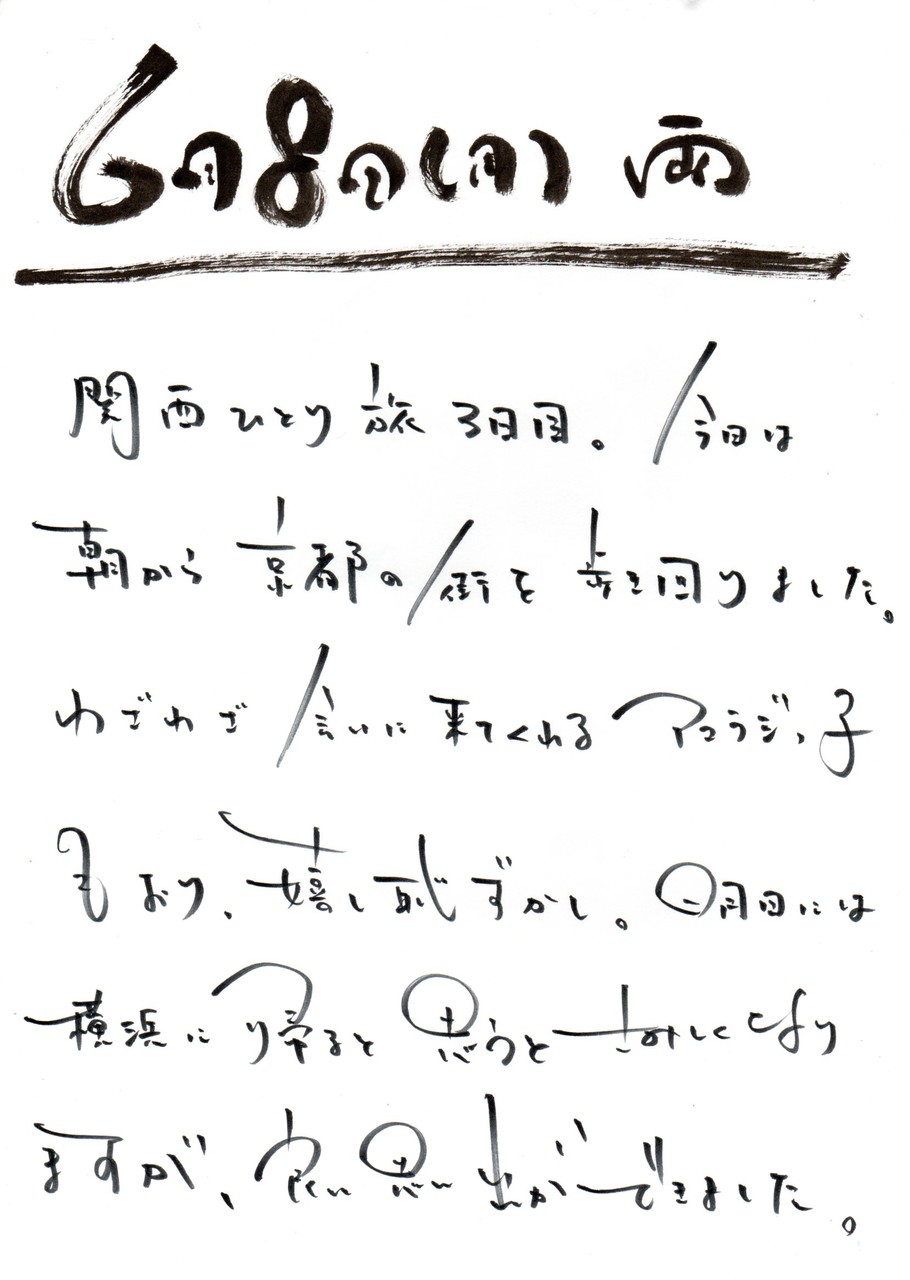 6月8日(月) 雨
関西ひとり旅3日目。今日は
朝から京都の街を歩き回りました。
わざわざ会いに来てくれるアコラジっ子
もおり、嬉し恥ずかし。明日には
横浜に帰ると思うとさみしくなり
ますが、良い思い出ができました。